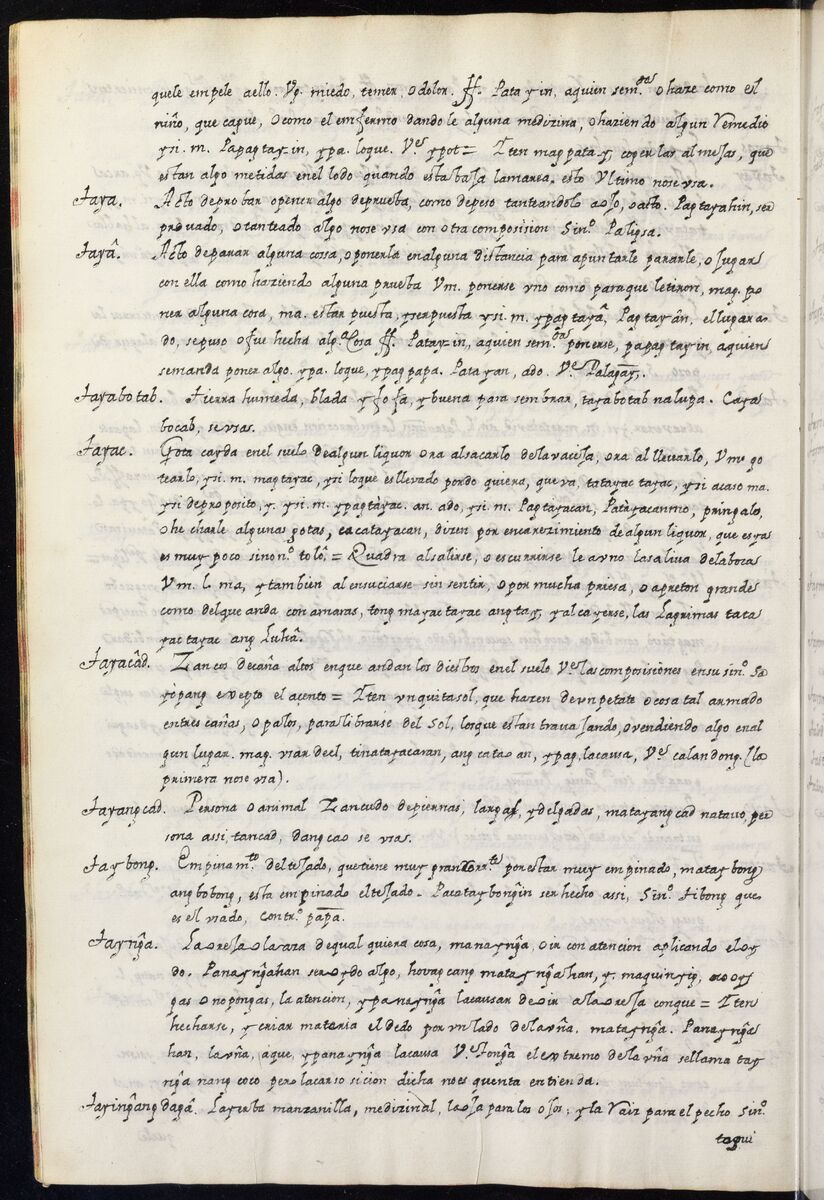 quele empele aello. Vg. miedo, temer, o dolor. ff. Patayin, aquien sem.das o haze como el
niño, que capue, o como el enfermo dandole alguna medizina, o haziendo algun Remedio
ysi. m. Papagtayin, ypa. loque. Ve. ypot = Iten magpatay, coger las almejas, que
estan algo metidas enel lodo quando esta baja lamarea. esto Vltimo nose vsa.
taya. Acto deprobar oponer algo deprueba, como depeso tanteandolo aojo, oacto. Pagtayahin, ser
provado, o tanteado algo nose vsa con otra composision Sin.o Palipsa.
tayâ. Acto deparar alguna cosa, oponerla enalguna distancia para apuntarle pararle, o jugar
con ella como haziendo alguna prueba Vm. ponerse vno como paraque letiren, mag. po
ner alguna cosa, ma. estar puesta, yserpuesta ysi. m. ypagtayâ, Pagtayân, ellugar a
do, sepuso ofue hecha alg.a Cosa ff. Patayin, aquien sem.das ponerse, papagtayin, aquien
semanda poner algo. ypa. loque, ypagpapa. Patayan, ado. Ve.
tayabotab. tierra humeda, blada y fofa, ybuena para sembrar, tayabotab nalupa. Caya
bocab, se vsas.
tayac. Gota cayda enel suelo dealgun liquor ora alsacarlo delavacija, ora al llevarlo, Vm. go
tearlo, ysi. m. magtayac, ysi loque esllevado pordo quiera, que va, tatayac tayac, ysi acaso ma.
ysi deproposito, y. ysi. m. ypagtàyac. an. ado, ysi. m. Pagtayacan, Patàyacanmo, pringalo,
ohe charle algunas gotas, cacatayacan, dizen por encarezimiento dealgun liquor, que esya
es muy poco sinon.o tolô. = Quadra alsalirse, o escurrirse le avno lasaliva delaboca
Vm. l. ma, ytambien al ensuciarse sin sentir, opor mucha priesa, o apreton grande
como delque anda con camaras, tongmayac tayac angtay, yalcayerse, las Lagrimas tata
yac tayac ang Luhâ.
tayacâd. Zancos decaña altos enque andan los diestros enel suelo Ve. las composisiones ensu sin.o Sa
yòpang exepto el acento = Iten vnquitasol, que hazen devnpetate o cosa tal armado
entres cañas, opalos, paraslibrarse del Sol, losque estan trava jando, ovendiendo algo enal
gun lugar. mag. vsar decl, tinatayacaran, ang catao an, ypag, lacausa, Ve. calandong. (la
primera nose vsa).
tayangcad. Persona o animal Zancudo depiernas, largas, ydelgadas, matayangcad natauo, per
sona assi, tancad, dangcao se vsas.
taybong. Empinam.to deltejado, quetiene muy gran corr.te porestar muy empinado, mataybong
angbobong, esta empinado eltejado. Pacataybongin ser hecho assi, Sin.o tibong que
es el vsado, contr.o papa.
tayngâ. La oreja o laraza dequal quiera cosa, manayngâ, oir con atencion aplicando eloy
do. Panayngâhan ser oydo algo, houag cang matayngâhan, y. maquinyig, no oy
gas o nopongas, la atencion, ypanayngâ lacausar deoir alaoreja conque = Iten
hecharse, y criar materia el dedo por vn lado delavña. matayngâ. Panayngâ
han, lavña, aque, ypanayngâ lacausa Ve. tongâ el extremo delavña sellama tay
ngâ nang coco pero lacarso sicion dicha noes quenta entienda.
tayingangdagâ. Layerba manzanilla, medizinal, laoja para los ojos, yla Raiz para el pecho Sin.o
taqui